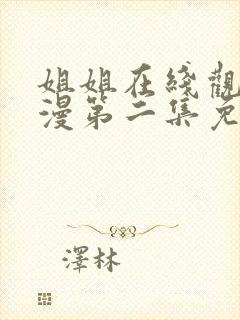 姐姐在綫觀
漫第二集免
澤林